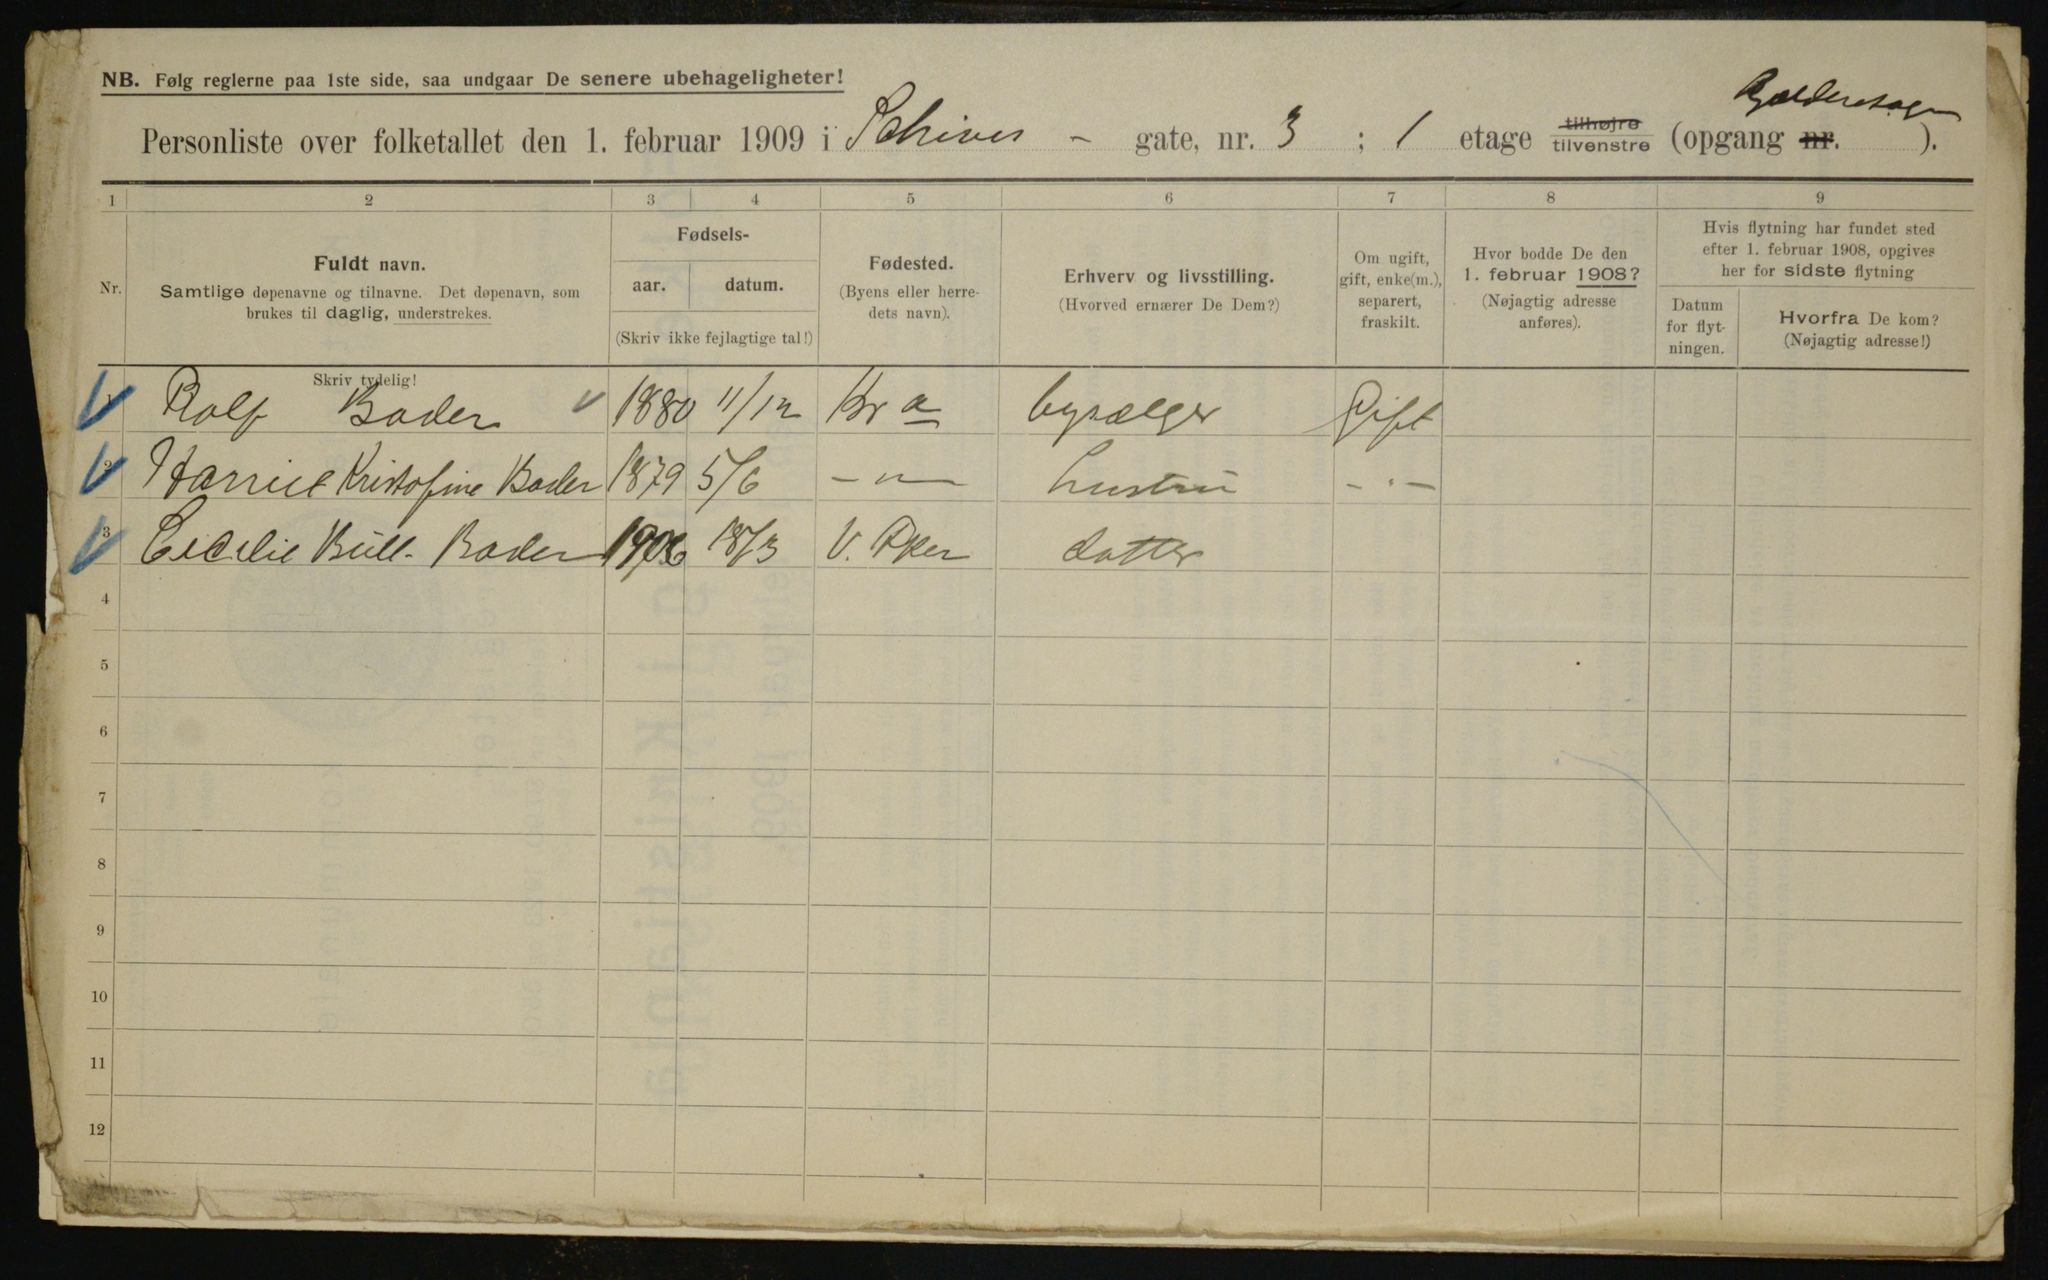 NB. Følg reglerne paa 1ste side, saa undgaar De senere ubehageligheter!
Personliste over folketallet den 1. februar 1909 i Schives - gate, nr. 3 ; 1 etage tilhøjre tilvenstre (opgang nr. ).
1 2 3 4 5 6 7 8 9
Nr.
Fuldt navn.
Samtlige døpenavne og tilnavne. Det døpenavn, som
brukes til daglig, understrekes.
Skriv tydelig!
Fødsels-
aar. datum.
(Skriv ikke fejlagtige tal!)
Fødested.
(Byens eller herre-
dets navn).
Erhverv og livsstilling.
(Hvorved ernærer De Dem?)
Om ugift,
gift, enke(m.),
separert,
fraskilt.
Hvor bodde De den
1. februar 1908?
(Nøjagtig adresse
anføres).
Hvis flytning har fundet sted
efter 1. februar 1908, opgives
her for sidste flytning
Datum
for flyt-
ningen.
Hvorfra De kom?
(Nøjagtig adresse!)
1 Rolf Bader 1880 11/12 Kra bysælger Gift
2 Harriet Kristofine Bader 1879 5/6 - " - hustru - " -
3 Cecilie Bull- Bader 1906 18/3 V. Aker datter
4
5
6
7
8
9
10
11
12